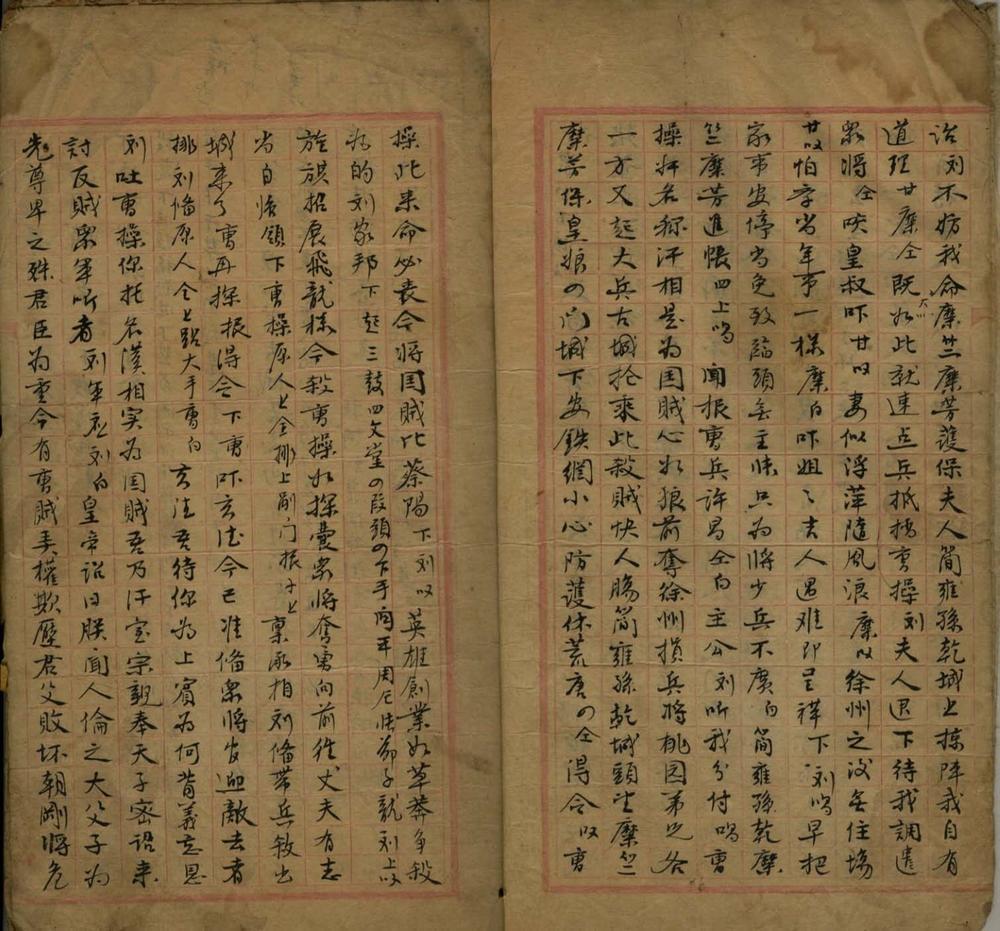 治刘不妨我命糜竺糜芳護保夫人簡雍孫乾城上掠陣我自有
道理甘糜仝既然如此就速点兵抵擋曹操刘夫人退下待我調遣
衆將仝唉皇叔吓甘以妻似浮萍隨風浪糜以徐州之没安住場
甘以怕孛当年事一樣糜白吓姐〻吉人遇难即呈祥下刘唱早把
家事安停当免致臨頭無主张只为將少兵不廣白簡雍孫乾糜
竺糜芳進帳四上唱聞报曹兵許昌仝白主公刘听我分付唱曹
操奸名称汗相是为国賊心如狼前奪徐州損兵將桃园弟兄各
一方又起大兵古城抢乘此殺賊快人腸簡雍孫乾城頭望糜竺
糜芳保皇娘の门城下安鉄網小心防護休荒唐の仝得令以曹
操此来命必丧今將国賊比蔡陽下刘以英雄創業如草莽争殺
为的刘家邦下起三鼓四文堂の段頭の下手関平周仓张苐子龍刘上以
旌旗招展飛龍樣今殺曹操如探囊衆將奮勇向前徃丈夫有志
当自強領下曹操原人上仝挪上副门报子上稟承相刘俻带兵敘出
城来了曹再探报得令下曹吓玄德今已准俻衆將官迎敵去者
排刘俻原人仝上照大手曹白玄德吾待你为上賓为何背義忘恩
刘吐曹操你托名漢相实为国賊吾乃汗室宗親奉天子密詔来
討反賊衆軍听者刘军应刘白皇帝詔曰朕聞人倫之大父子为
先尊卑之殊君臣为重今有曹賊弄權欺壓君父敗坏朝剛將危